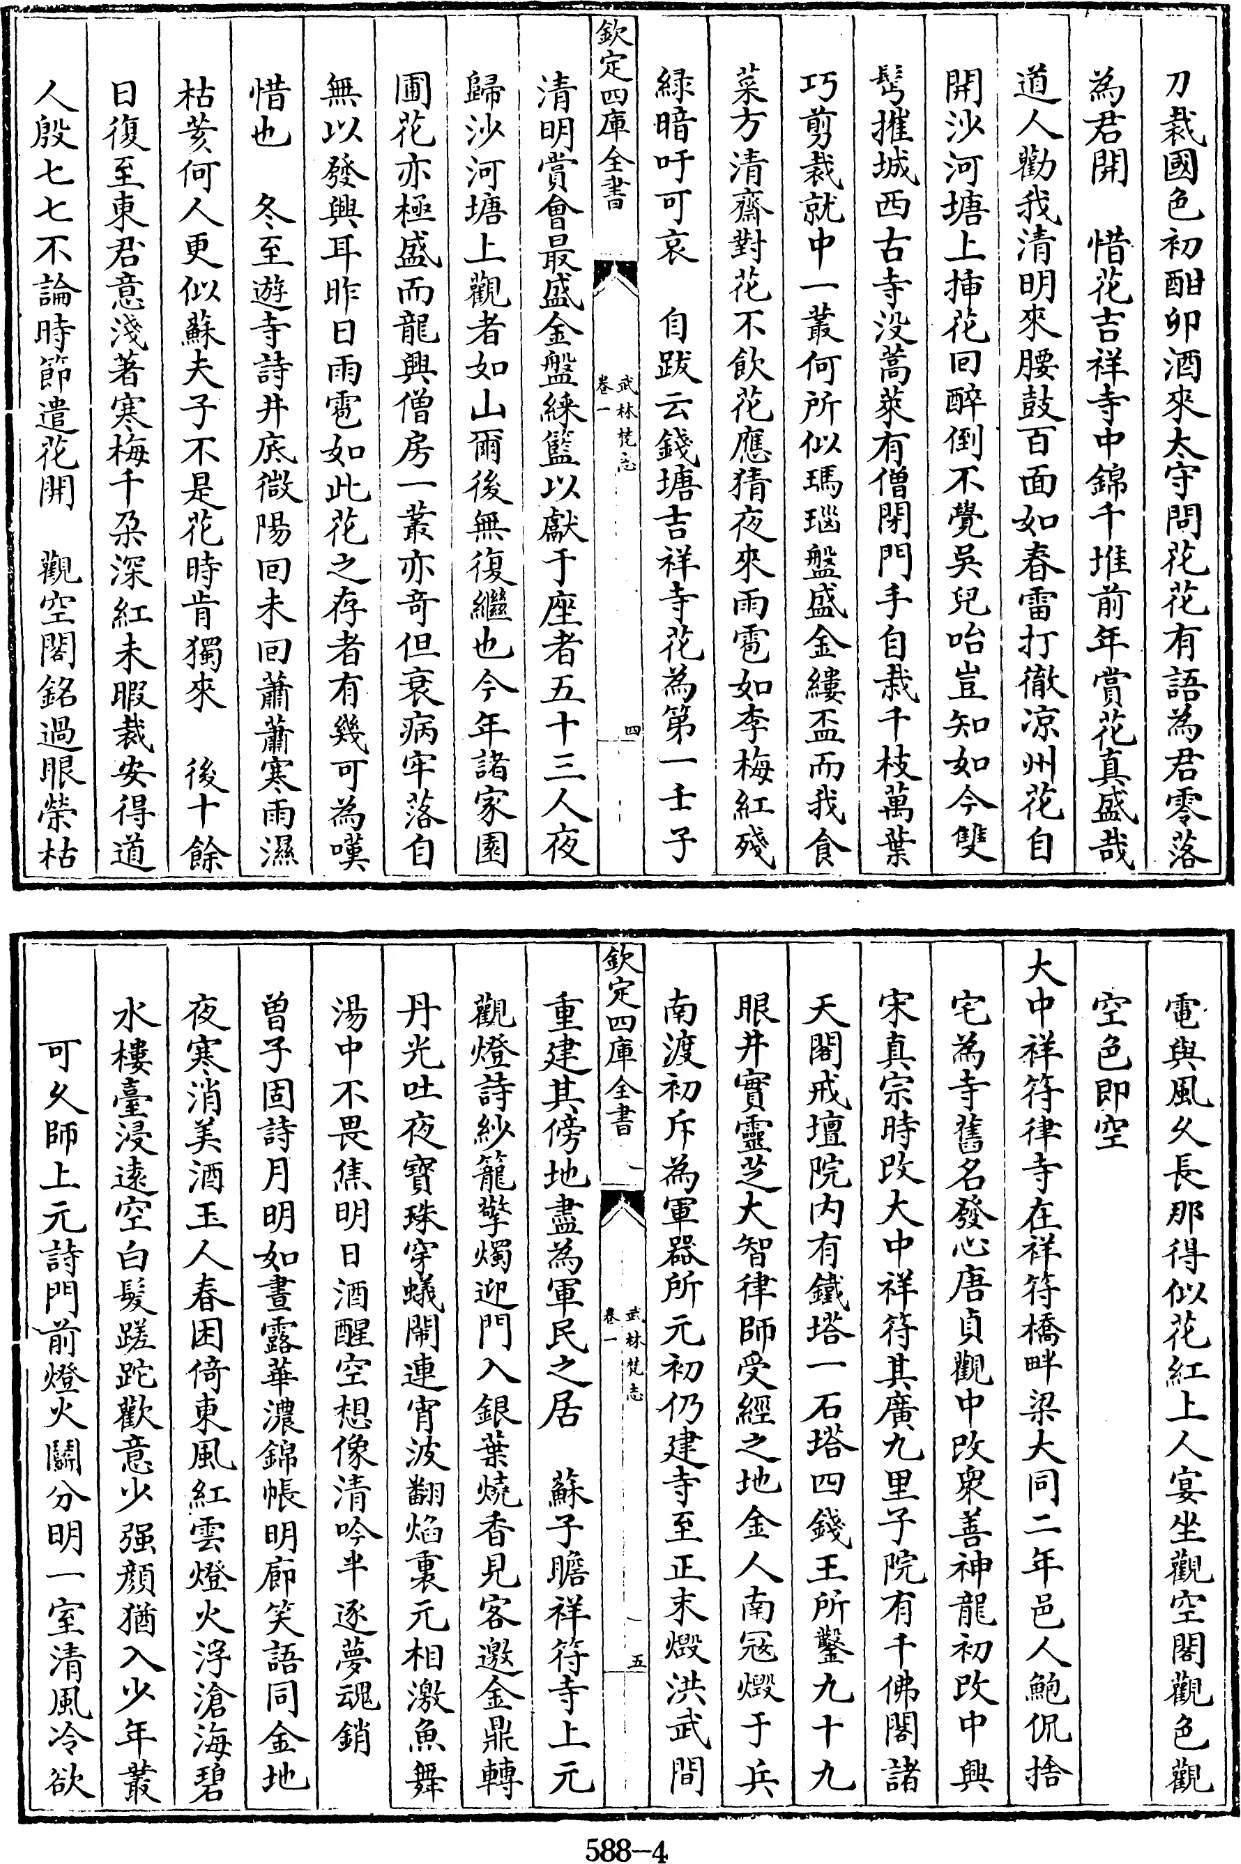 刀裁國色初酣卯酒來太守問花花有語為君零落
為君開　惜花吉祥寺中錦千堆前年賞花真盛哉
道人勸我清明來腰鼓百面如春雷打徹凉州花自
開沙河塘上揷花回醉倒不覺吳兒咍豈知如今雙
髩摧城西古寺没蒿萊有僧閉門手自栽千枝萬葉
巧剪裁就中一叢何所似瑪瑙盤盛金縷盃而我食
菜方清齋對花不飲花應猜夜來雨雹如李梅紅殘
緑暗吁可哀　自跋云錢塘吉祥寺花為第一壬子
欽定四庫全書
武林梵志
卷一
四
清明賞會最盛金盤綵籃以獻于座者五十三人夜
歸沙河塘上觀者如山爾後無復繼也今年諸家園
圃花亦極盛而龍興僧房一叢亦奇但衰病牢落自
無以發興耳昨日雨雹如此花之存者有幾可為嘆
惜也　冬至遊寺詩井底微陽回未回蕭蕭寒雨濕
枯荄何人更似蘇夫子不是花時肯獨來　後十餘
日復至東君意淺著寒梅千朶深紅未暇裁安得道
人殷七七不論時節遣花開　觀空閣銘過眼榮枯
電與風久長那得似花紅上人宴坐觀空閣觀色觀
空色即空
大中祥符律寺在祥符橋畔梁大同二年邑人鮑侃捨
宅為寺舊名發心唐貞觀中改衆善神龍初改中興
宋真宗時改大中祥符其廣九里子院有千佛閣諸
天閣戒壇院内有鐵塔一石塔四錢王所鑿九十九
眼井實靈芝大智律師受經之地金人南冦燬于兵
南渡初斥為軍器所元初仍建寺至正末燬洪武間
欽定四庫全書
武林梵志
卷一
五
重建其傍地盡為軍民之居　蘇子瞻祥符寺上元
觀燈詩紗籠擎燭迎門入銀葉燒香見客邀金鼎轉
丹光吐夜寶珠穿蟻閙連宵波翻焰裏元相激魚舞
湯中不畏焦明日酒醒空想像清吟半逐夢魂銷
曾子固詩月明如晝露華濃錦帳明廊笑語同金地
夜寒消美酒玉人春困倚東風紅雲燈火浮滄海碧
水樓臺浸遠空白髮蹉跎歡意少强顔猶入少年叢
可久師上元詩門前燈火鬬分明一室清風冷欲
588-4